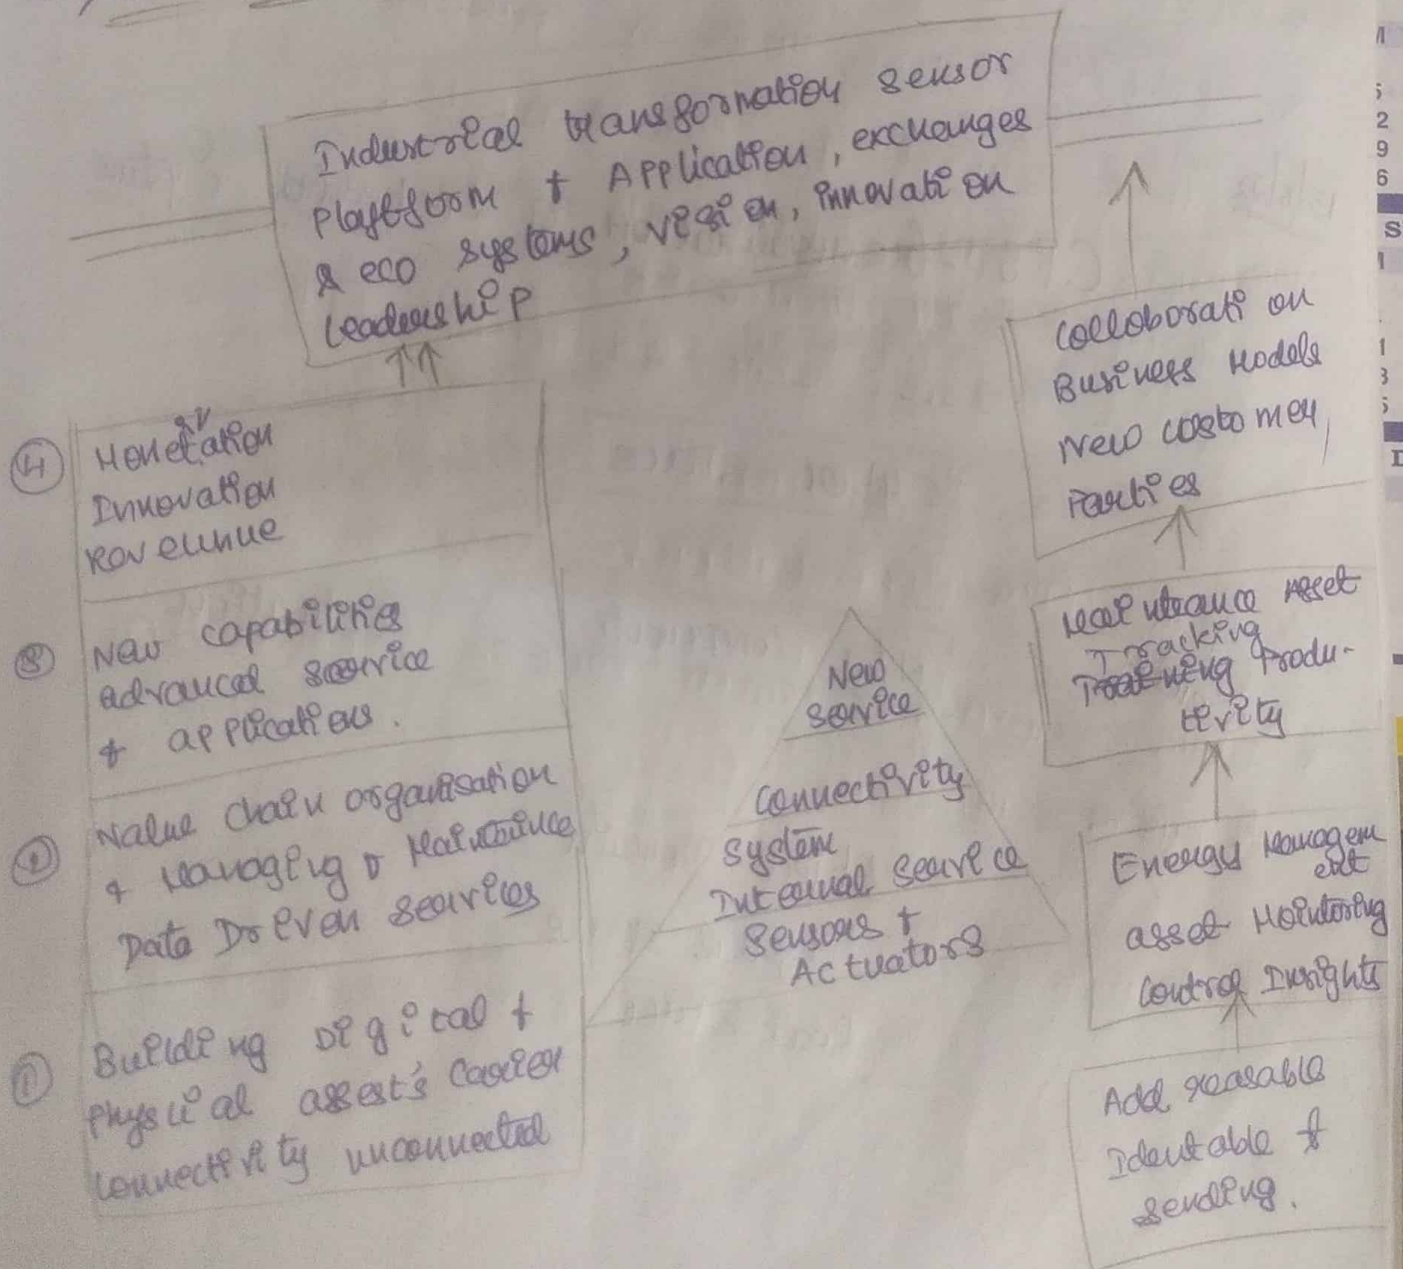 Industrial transformation sensor
Playtform + Application, exchanges
& eco systems, vision, innovation
Leadership
④ Monetization
Innovation
Revenue
③ New capabilities
advanced service
+ applications.
② Value chain organisation
+ Managing & Maintaince
Data Driven Services
① Building Digital +
Physical assest's Carrier
connectivity unconnected
New
service
Connectivity
system
Internal Service
Sensors +
Actuators
Colloboration
Business Models
New customer,
Parties
Maintenance Asset
Tracking
Produ-
tivity
Energy Managem
ent
asset Mointoring
Control Insights
Add
Identable &
sending.
M
5
2
9
6
S
1
3
5